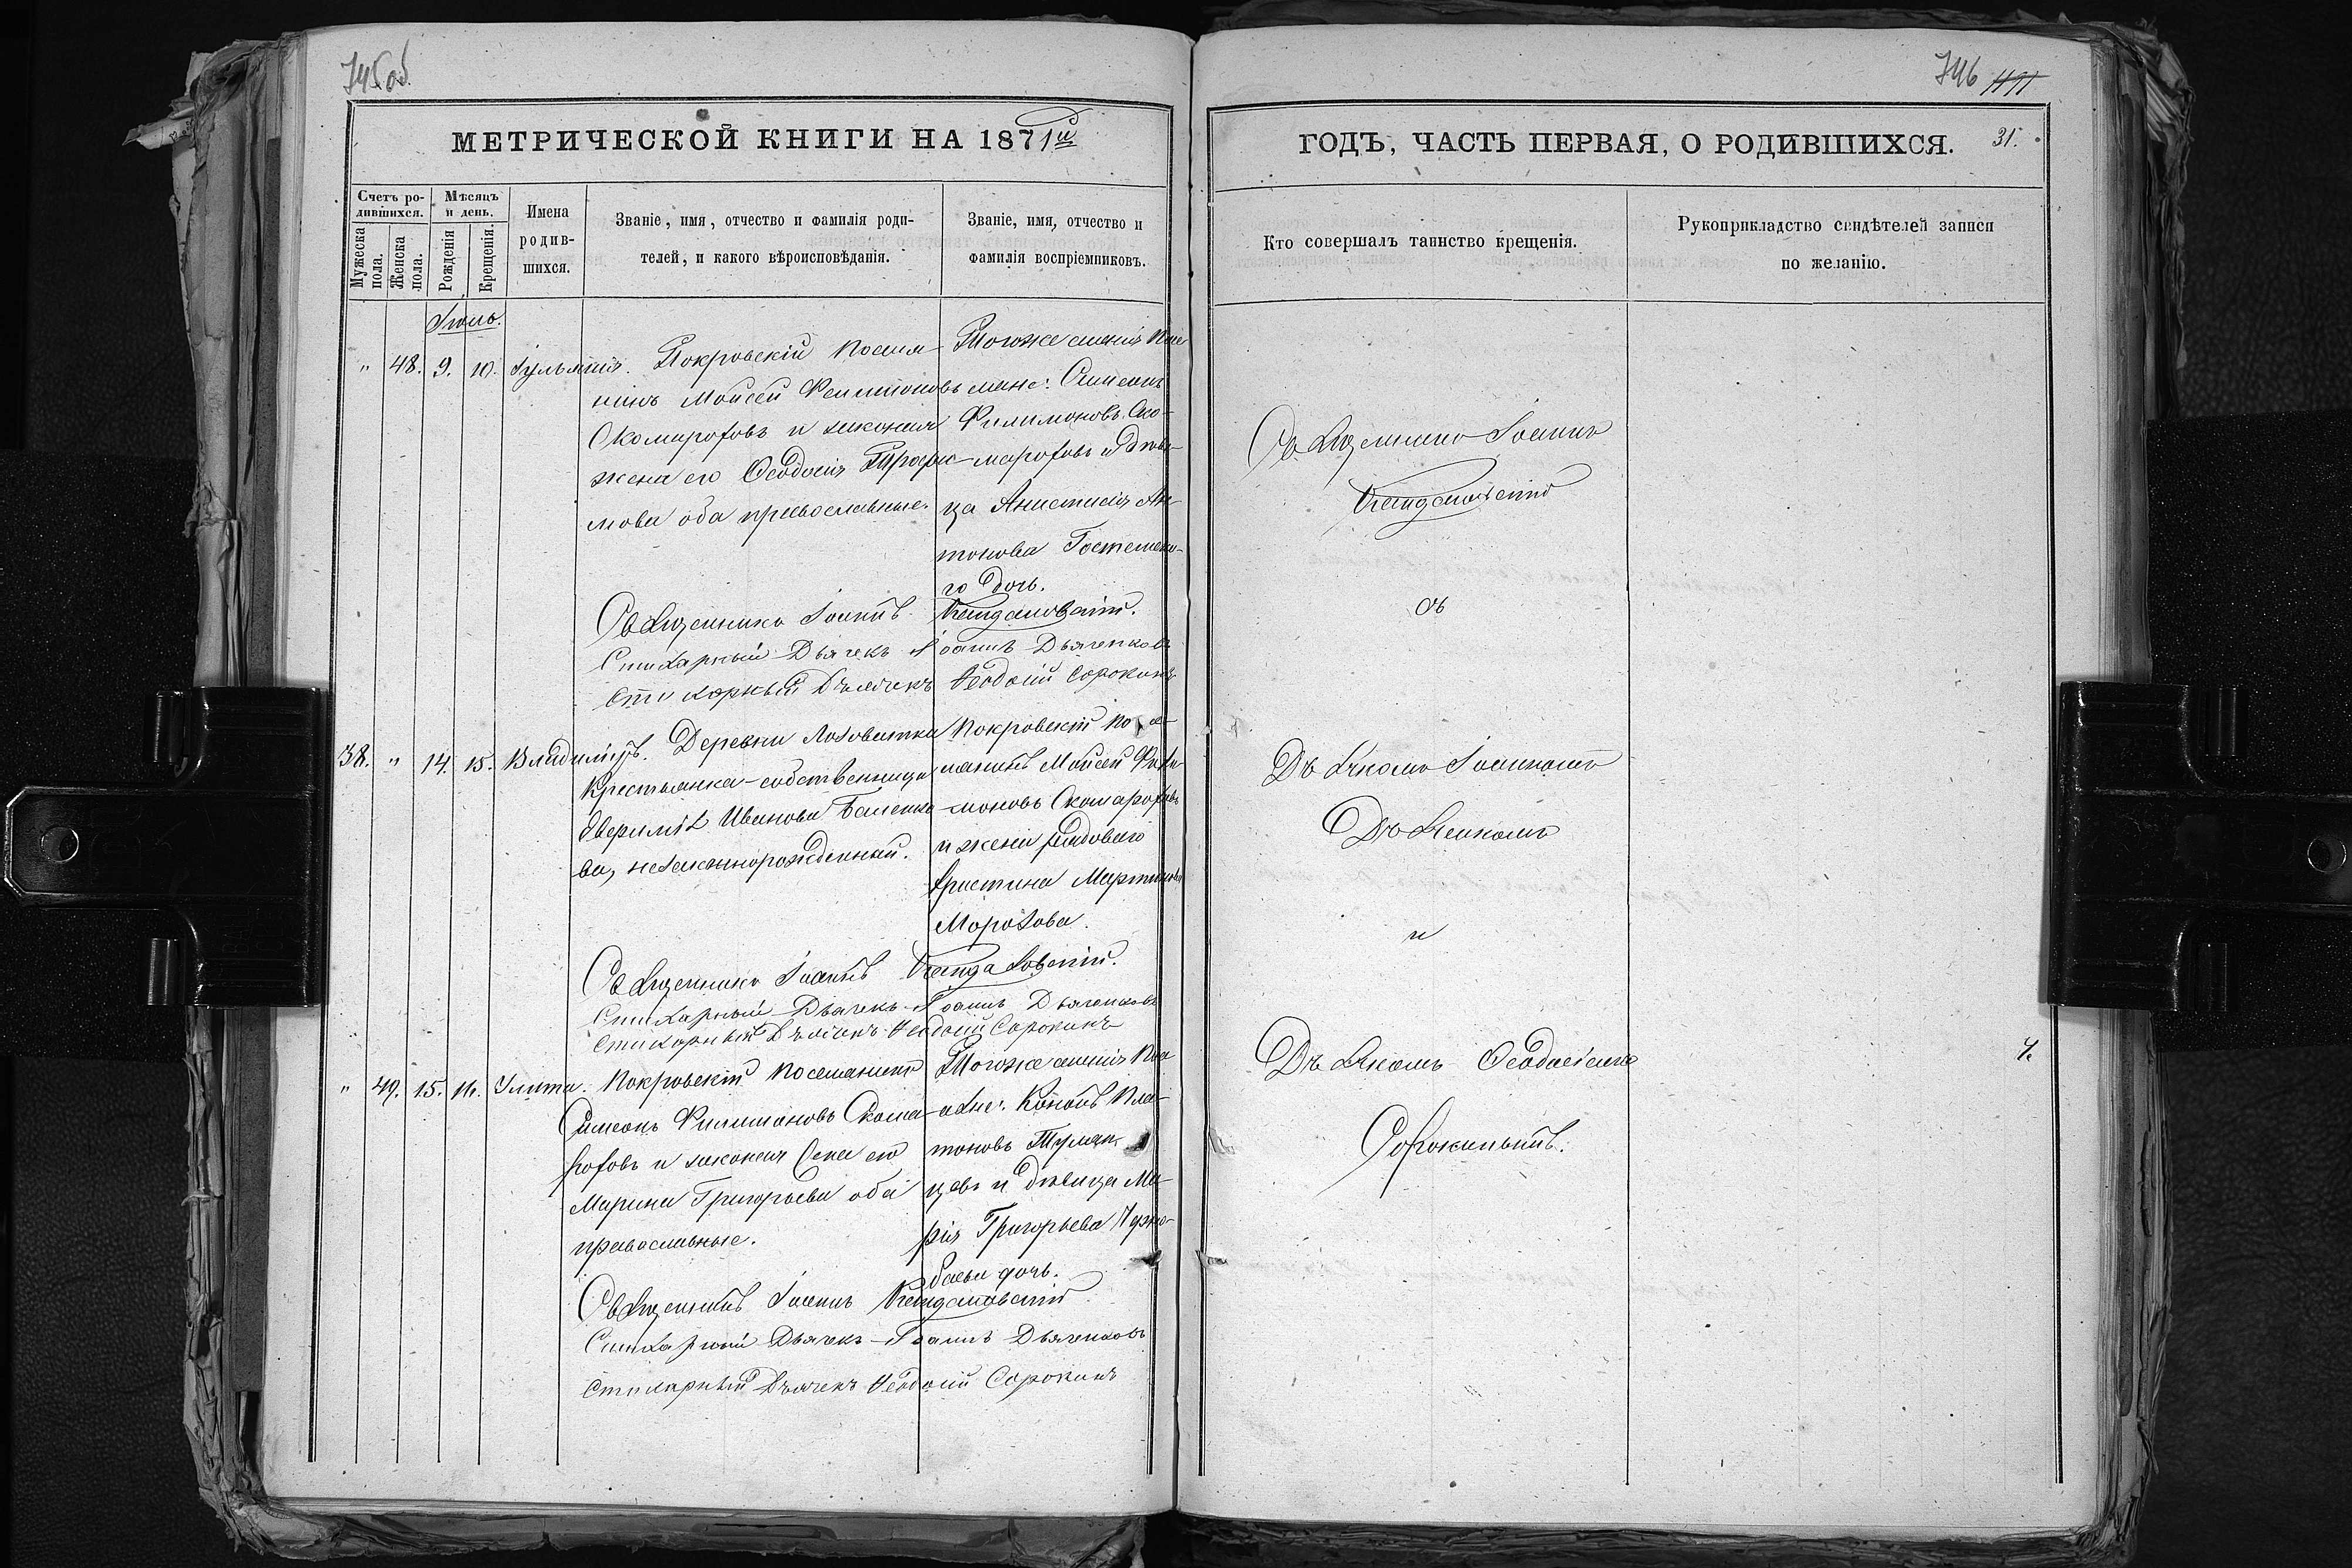 745 об.
МЕТРИЧЕСКОЙ КНИГИ НА 1871й
Счетъ ро-
дившихся.
Мужеска пола.
Женска пола.
Мѣсяцъ
и день.
Рожденія
Крещенія.
Имена
родив-
шихся.
Званіе, имя, отчество и фамилія роди-
телей, и какого вѣроисповѣданія.
Званіе, имя, отчество и
фамилія воспріемниковъ.
Іюль.
" 48. 9. 10. Іульянія.
Покровскій поселя-
нинъ Мойсей Филимоновъ
Скомароховъ и законная
жена его Ѳеодосія Трофи-
мова оба православные.
Тогоже имѣнія посе-
ляне: Симеонъ
Филимоновъ Ско-
мароховъ и дѣви-
ца Анистасія Ан-
тонова
го дочь.
Священникъ Іоаннъ
Стихарный Дьячекъ Іоаннъ Дьяченковъ
Стихарный Дьячекъ Ѳеодосій Сорокинъ
38. " 14. 15. Владиміръ.
Деревни Лозоватки
Крестьянка-собственница
Евфимія Иванова
ва, незаконнорожденный.
Покровскій посе-
лянинъ Мойсей Фили-
моновъ Скомароховъ
и жена рядоваго
Христина Мартинова
Морозова.
Священникъ Іоаннъ
Стихарный Дьячекъ Іоаннъ Дьяченковъ
Стихарный Дьячекъ Ѳеодосій Сорокинъ
" 49. 15. 16. Улита.
Покровскій поселянинъ
Симеонъ Филимоновъ Скома-
роховъ и законная жена его
Марина Григорьева оба
православные.
Тогоже имѣнія посе-
ляне: Кононъ Пла-
тоновъ Туман-
цевъ и дѣвица Ма-
рія Григорьева
баева дочь.
Священникъ Іоаннъ
Стихарный Дьячекъ Іоаннъ Дьяченковъ
Стихарный Дьячекъ Ѳеодосій Сорокинъ
746 1191
ГОДЪ, ЧАСТЬ ПЕРВАЯ, О РОДИВШИХСЯ. 31.
Кто совершалъ таинство крещенія.
Рукоприкладство свидѣтелей записи
по желанію.
Священникъ Іоаннъ
съ
Дьячкомъ Іоанномъ
Дьяченкомъ
и
Дьячкомъ Ѳеодосіемъ
Сорокинымъ.